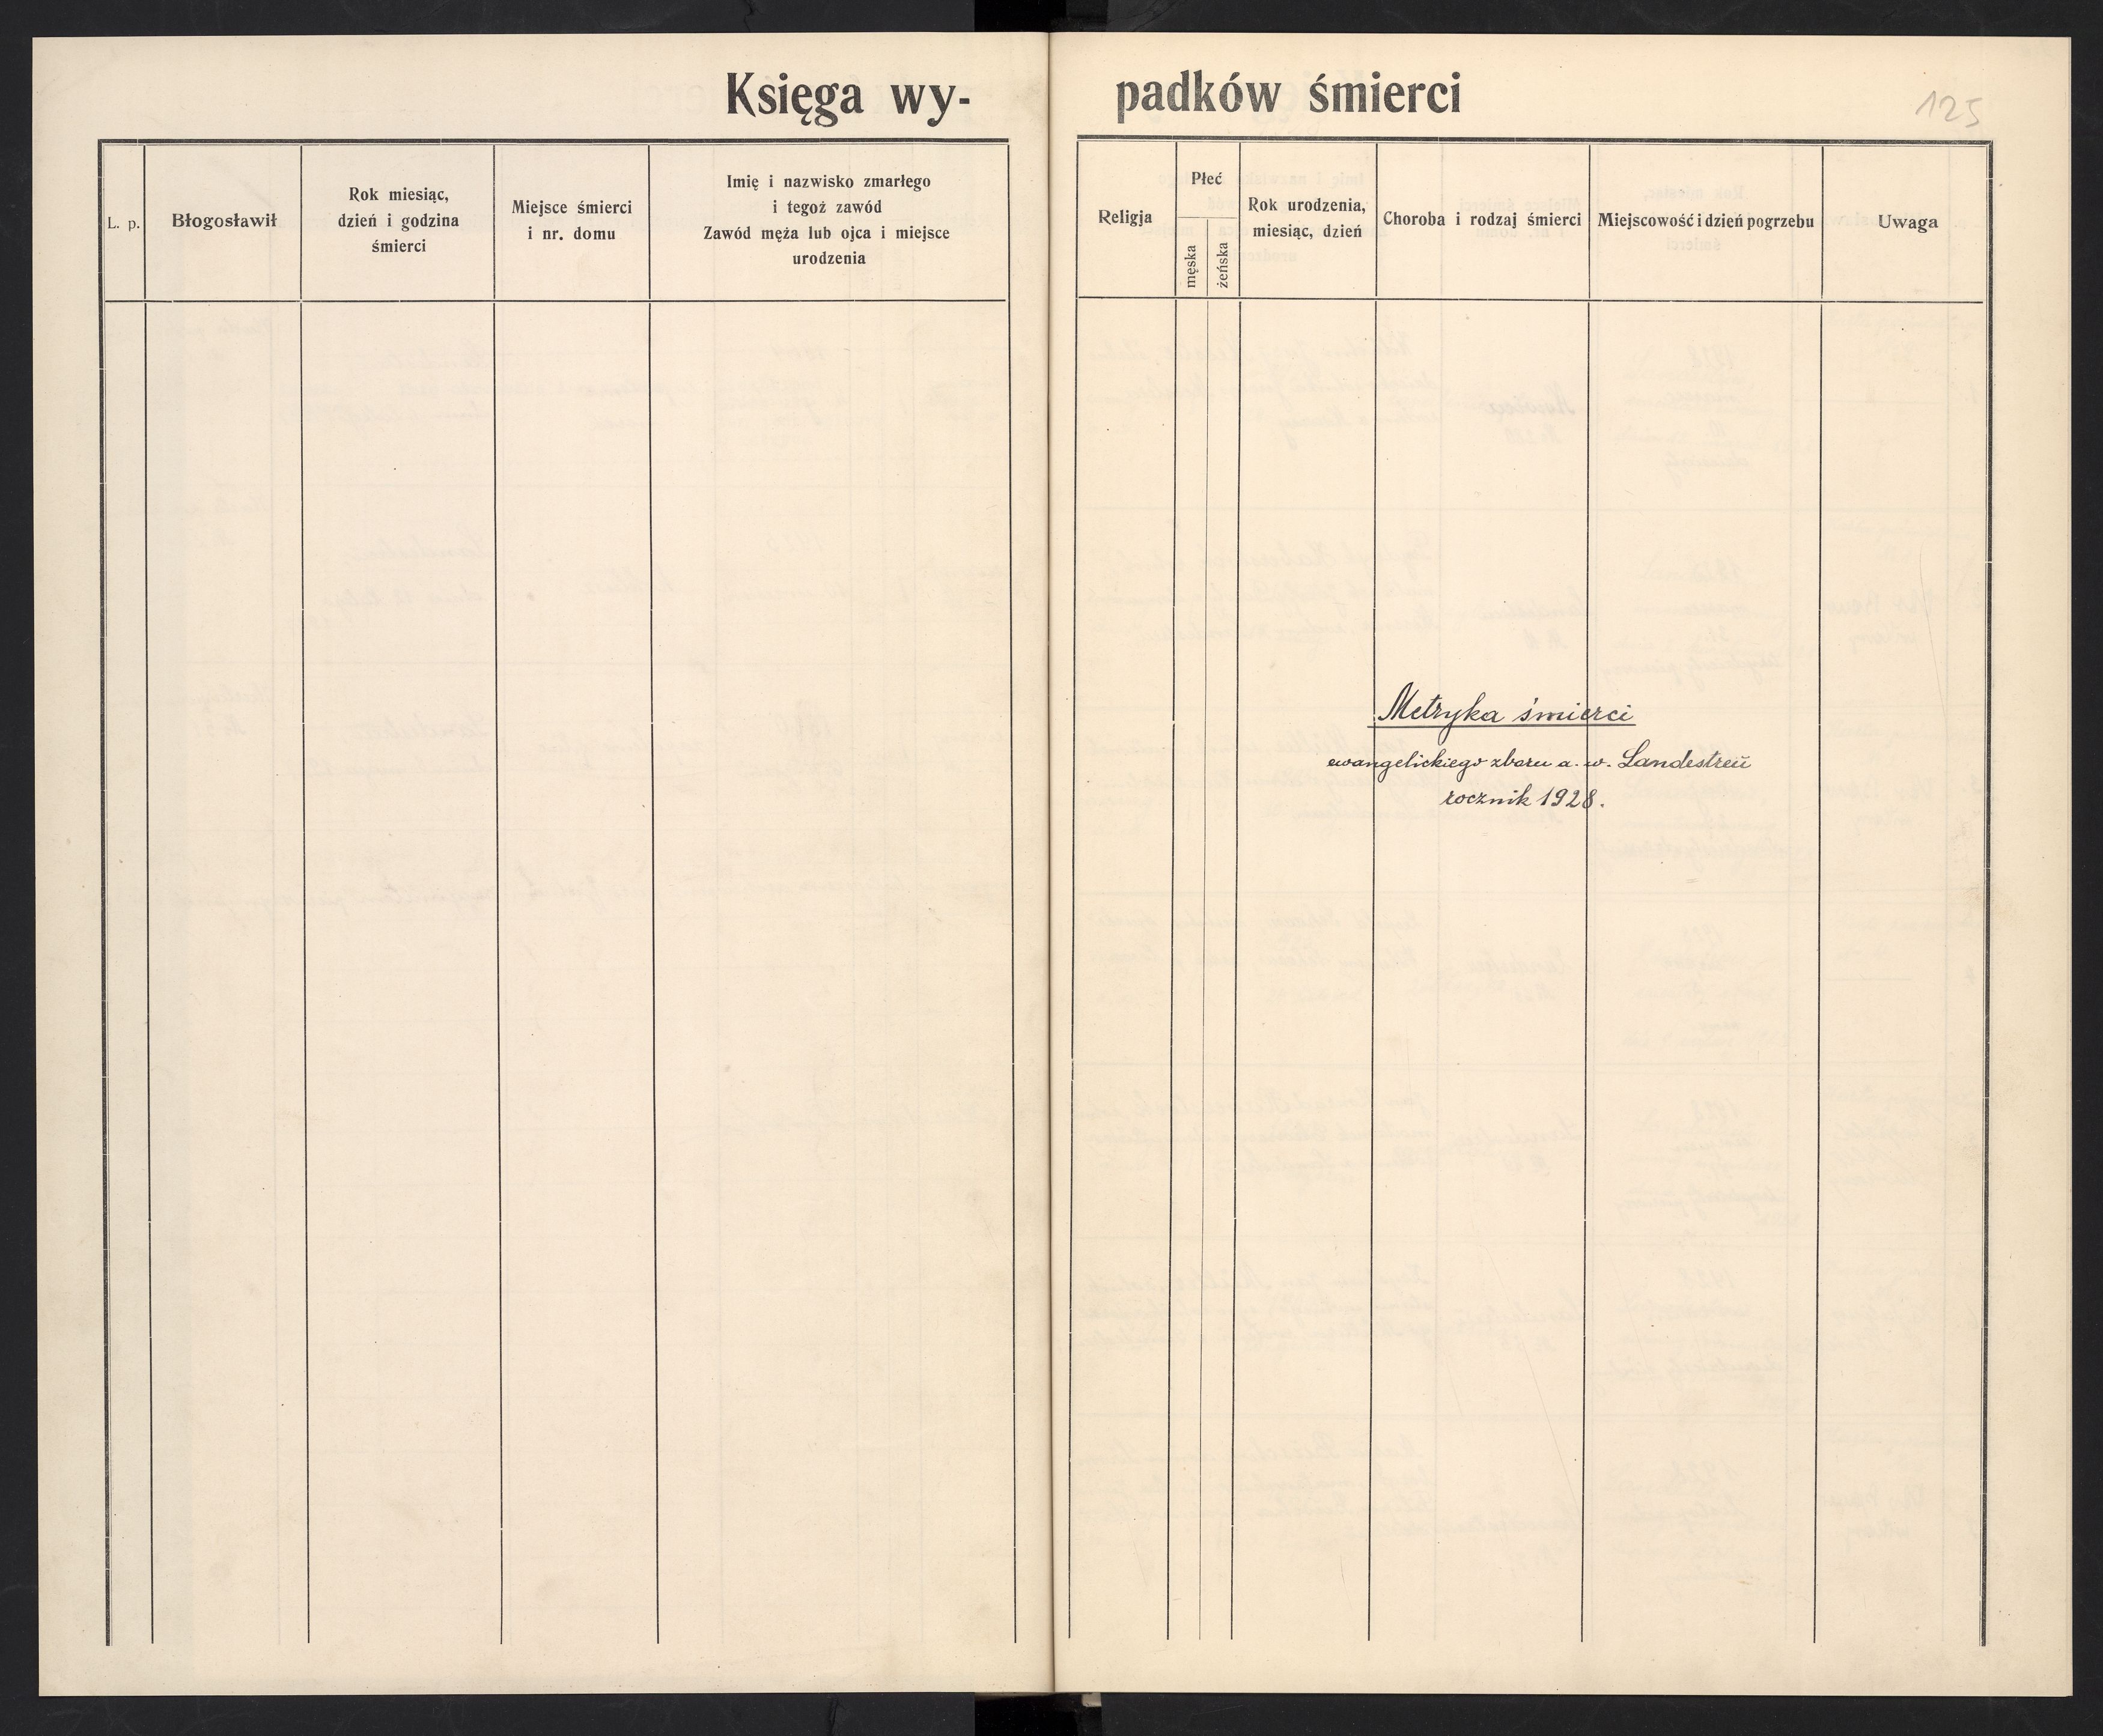 Księga wy-
padków śmierci
125
L. p.
Błogosławił
Rok miesiąc,
dzień i godzina
śmierci
Miejsce śmierci
i nr. domu
Imię i nazwisko zmarłego
i tegoż zawód
Zawód męża lub ojca i miejsce
urodzenia
Religja
Płeć
męska
żeńska
Rok urodzenia,
miesiąc, dzień
Choroba i rodzaj śmierci
Miejscowość i dzień pogrzebu
Uwaga
Metryka śmierci
ewangelickiego zboru a. w. Landestreü
rocznik 1928.